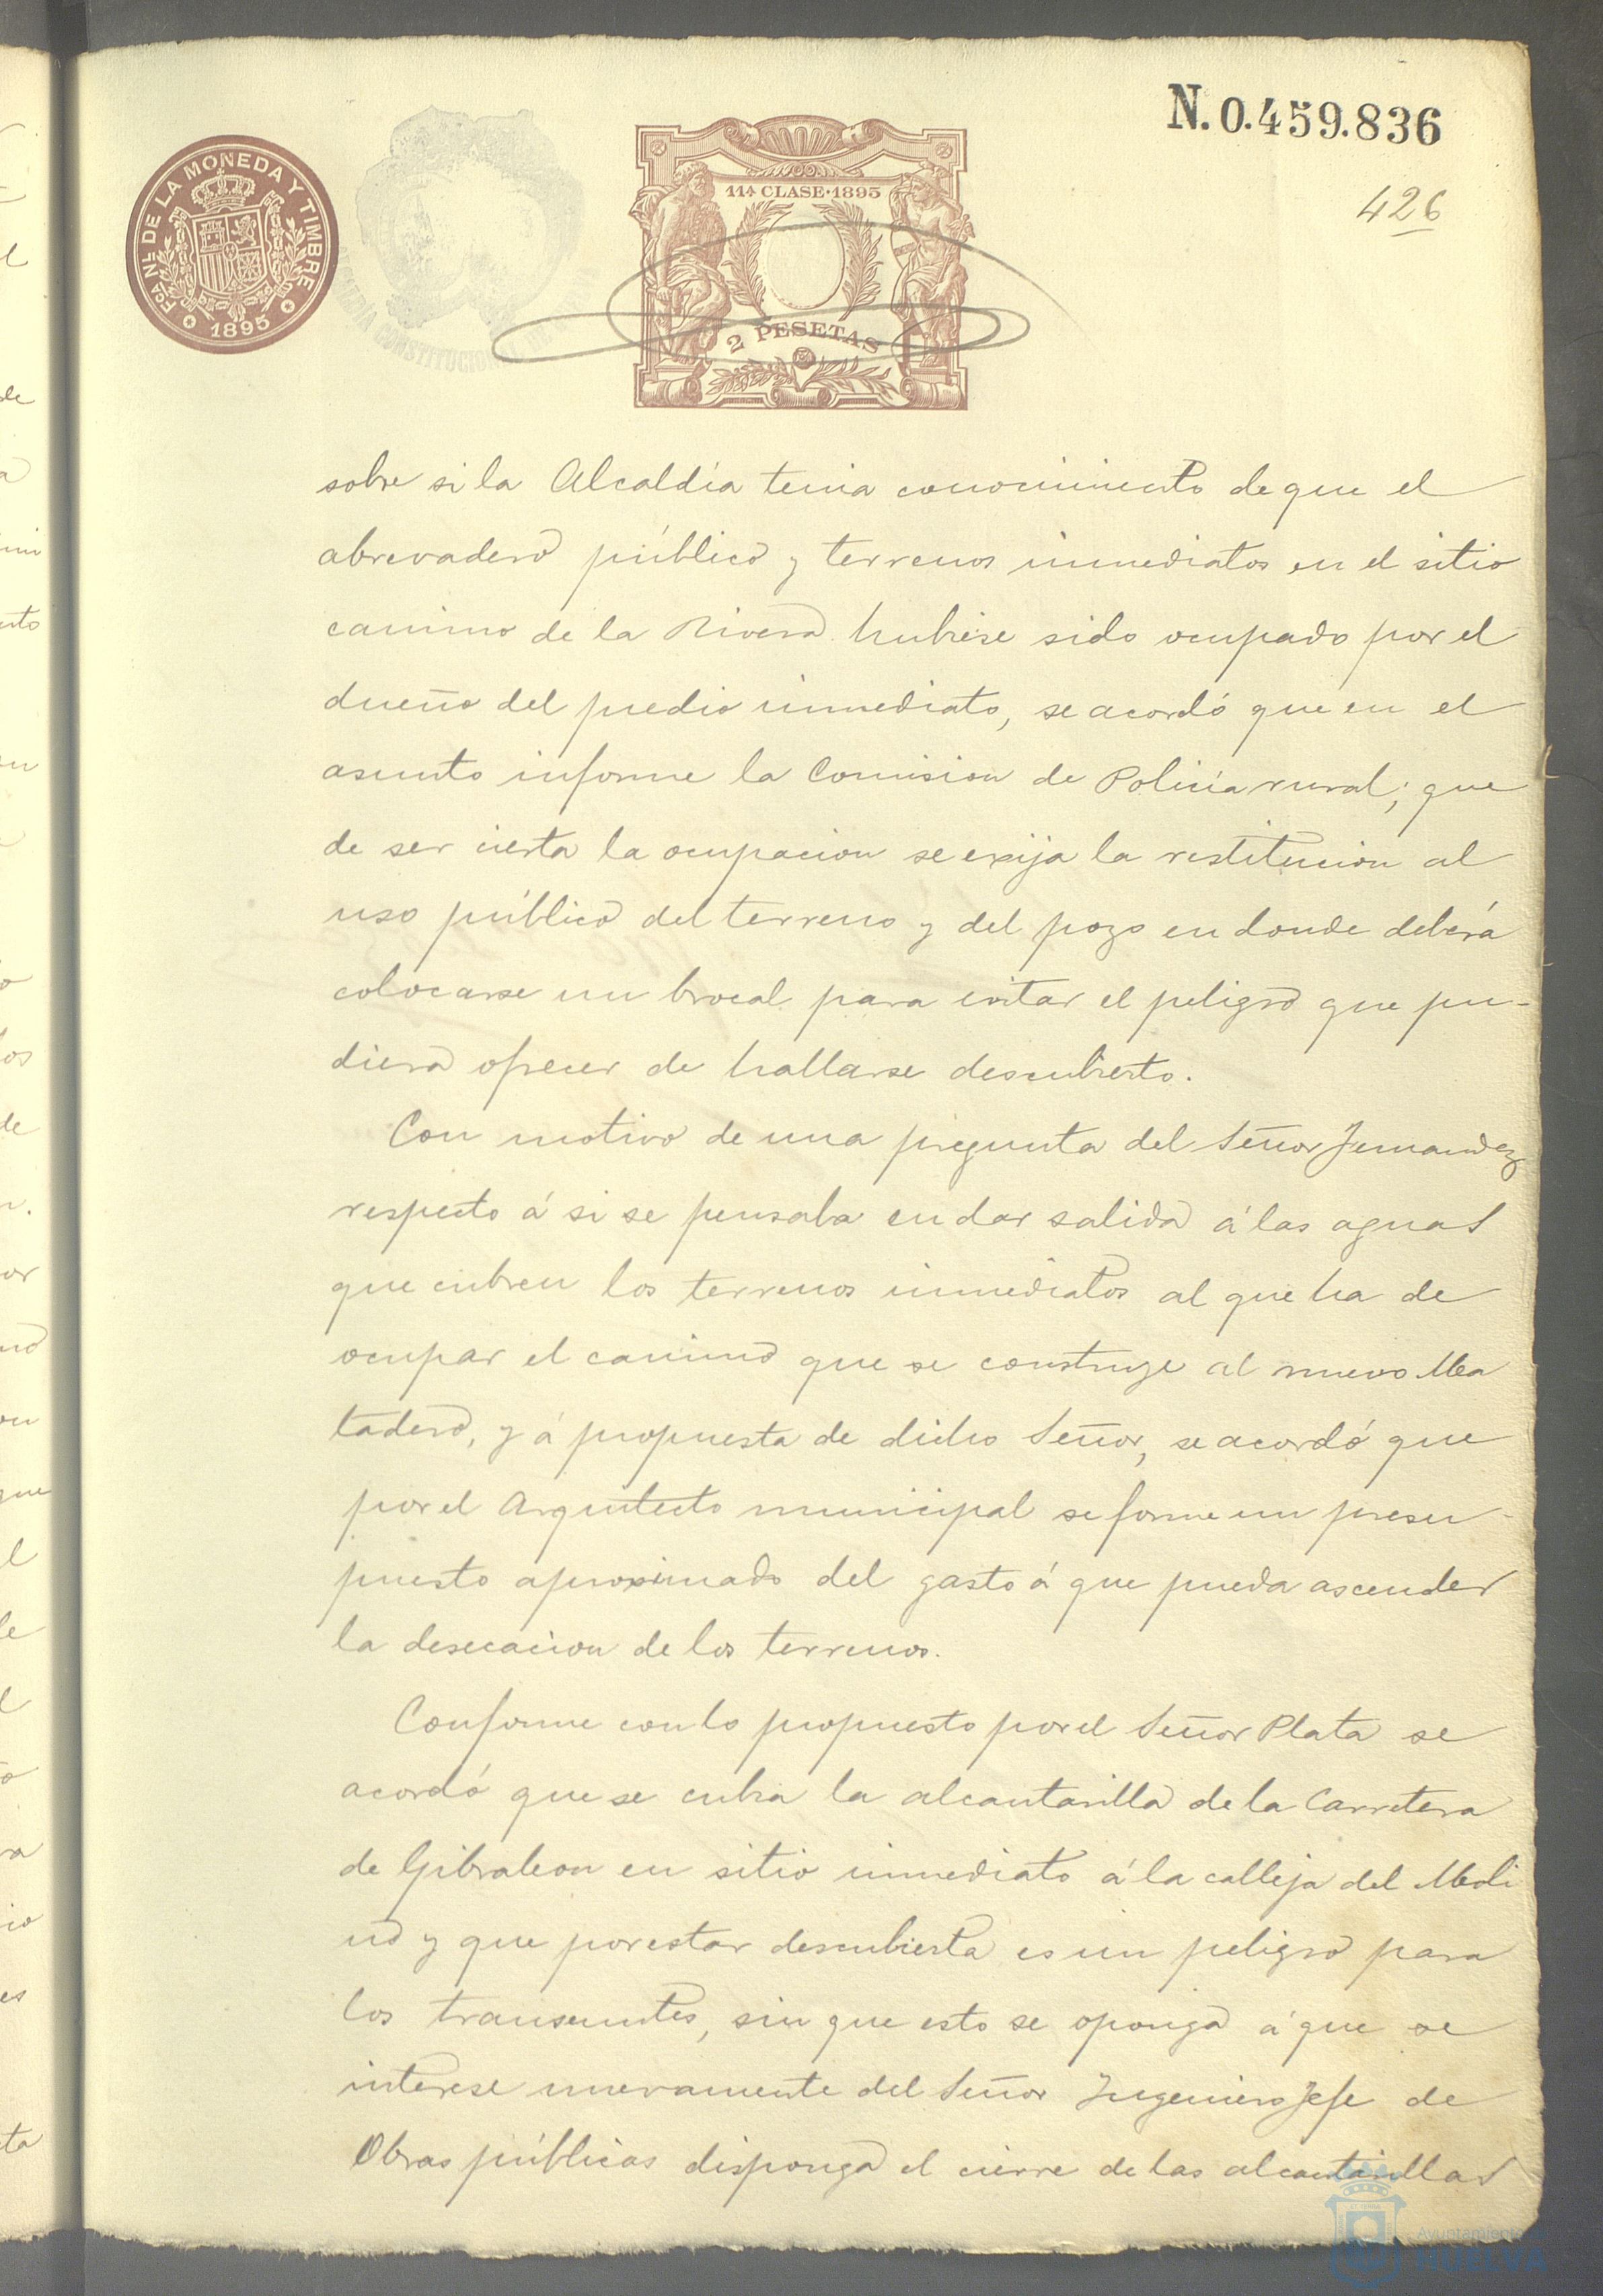 N. 0.459.836
426
FCA. NL. DE LA MONEDA Y TIMBRE
1895
11ª CLASE·1895
2 PESETAS
sobre si la Alcaldía tenia conocimiento de que el
abrevadero público y terrenos inmediatos en el sitio
camino de la Rivera hubiese sido ocupado por el
dueño del predio inmediato, se acordó que en el
asunto informe la Comision de Policía rural; que
de ser cierta la ocupacion se exija la restitucion al
uso público del terreno y del pozo en donde deberá
colocarse un brocal para evitar el peligro que pu-
diera ofrecer de hallarse descubierto.
Con motivo de una pregunta del Señor Fernandez
respecto á si se pensaba en dar salida á las aguas
que cubren los terrenos inmediatos al que ha de
ocupar el camino que se construye al nuevo Ma
tadero, y á propuesta de dicho Señor, se acordó que
por el Arquitecto municipal se forme un presu-
puesto aproximado del gasto á que pueda ascender
la desecacion de los terrenos.
Conforme con lo propuesto por el Señor Plata se
acordó que se cubra la alcantarilla de la Carretera
de Gibraleon en sitio inmediato á la calleja del Moli
no y que por estar descubierta es un peligro para
los transeuntes, sin que esto se oponga á que se
interese nuevamente del Señor Ingeniero Jefe de
Obras públicas disponga el cierre de las alcantarillas
Ayuntamiento
HUELVA